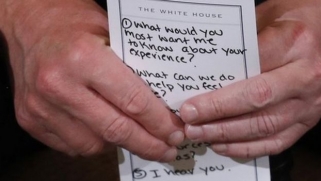 THE WHITE HOUSE
① What would you
most want me
to know about your
experience?
② What can we do
help you feel
?
⑤ I hear you.